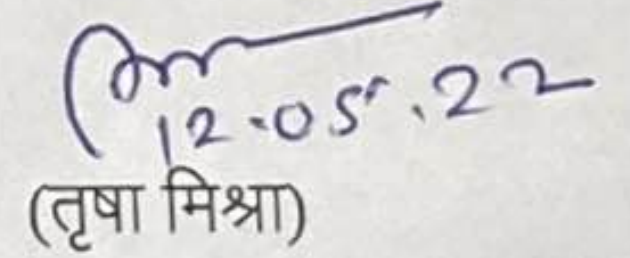 12.05.22
(तृषा मिश्रा)